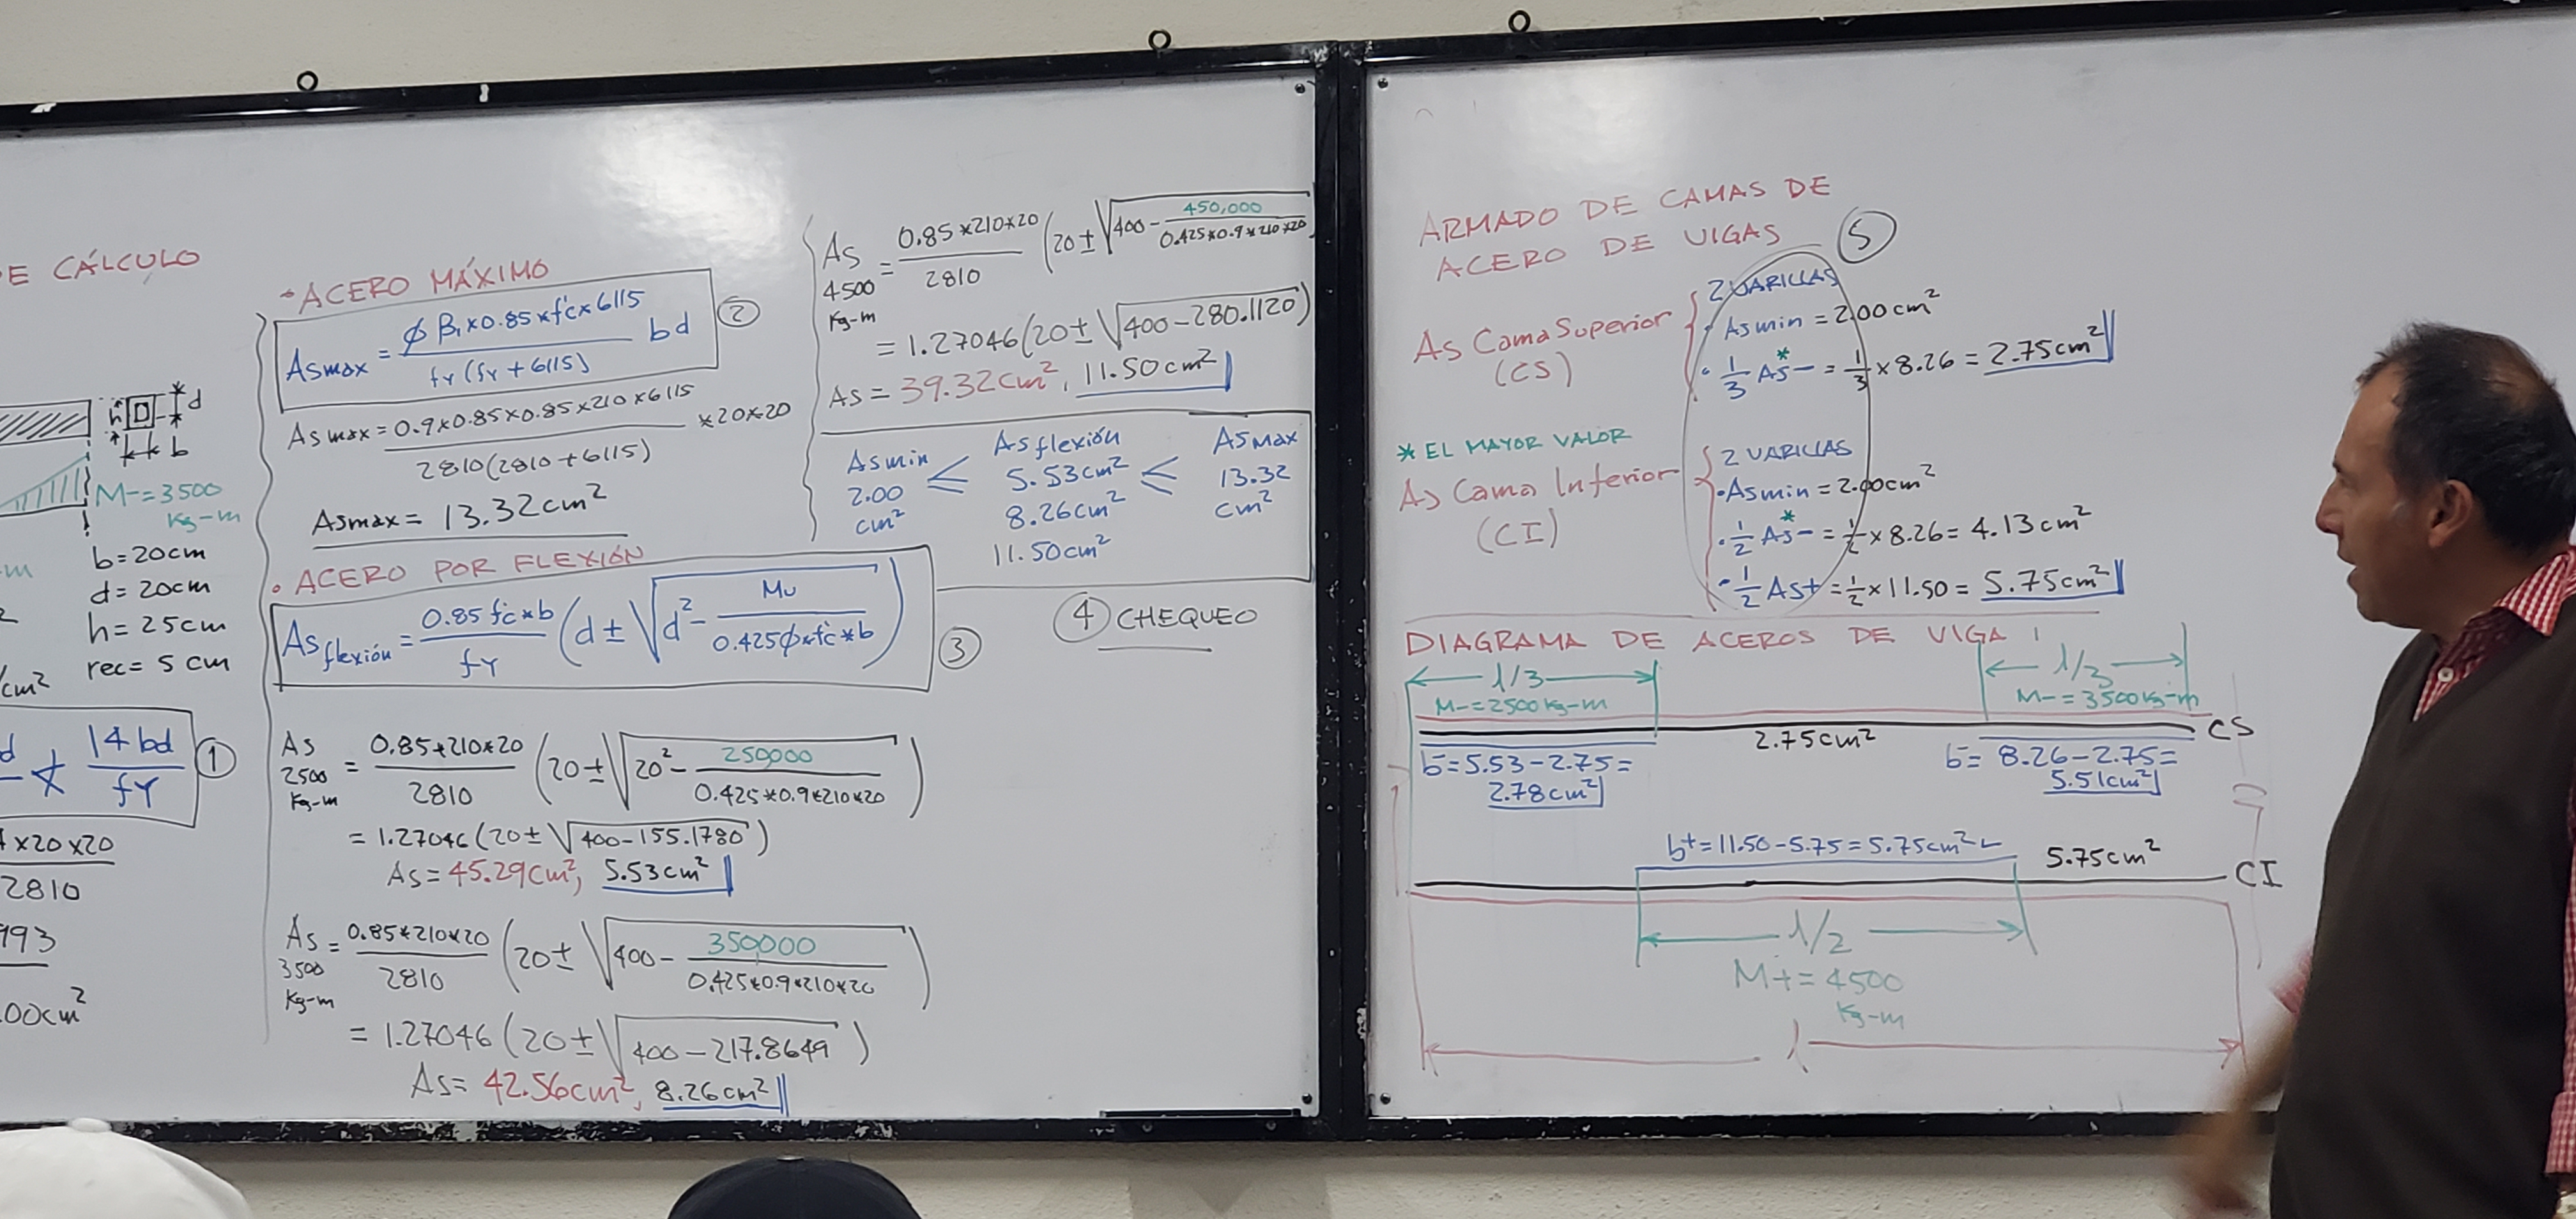 E CÁLCULO
h
d
b
M-=3500
Kg-m
b=20cm
d=20cm
h=25cm
rec= 5 cm
cm²
14bd
fY
①
×20×20
2810
993
.00cm²
• ACERO MÁXIMO
Asmax = ϕ β₁×0.85×f'c×6115 / fy (fy + 6115) bd
②
Asmax = 0.9×0.85×0.85×210×6115 / 2810(2810+6115) ×20×20
Asmax = 13.32cm²
• ACERO POR FLEXIÓN
As flexión = 0.85 f'c*b / fY (d ± √(d² - Mu / 0.425ϕ*f'c*b))
③
As 2500 Kg-m = 0.85*210*20 / 2810 (20 ± √(20² - 250,000 / 0.425*0.9*210*20))
= 1.27046 (20 ± √(400-155.1780))
As = 45.29cm², 5.53cm²
As 3500 Kg-m = 0.85*210*20 / 2810 (20 ± √(400 - 350,000 / 0.425*0.9*210*20))
= 1.27046 (20 ± √(400-217.8649))
As= 42.56cm², 8.26cm²
As 4500 Kg-m = 0.85*210*20 / 2810 (20 ± √(400 - 450,000 / 0.425*0.9*210*20))
= 1.27046 (20 ± √(400-280.1120))
As = 39.32cm², 11.50cm²
Asmin ≤ Asflexión ≤ Asmax
2.00 cm²
5.53cm²
8.26cm²
11.50cm²
13.32 cm²
④ CHEQUEO
ARMADO DE CAMAS DE
ACERO DE VIGAS
⑤
As Cama Superior
(CS)
2 VARILLAS
• Asmin = 2.00cm²
• 1/3 As-* = 1/3 × 8.26 = 2.75cm²
* EL MAYOR VALOR
As Cama Inferior
(CI)
2 VARILLAS
• Asmin = 2.00cm²
• 1/2 As-* = 1/2 × 8.26 = 4.13cm²
• 1/2 As+ = 1/2 × 11.50 = 5.75cm²
DIAGRAMA DE ACEROS DE VIGA 1
l/3
l/3
M-=2500 Kg-m
M-=3500Kg-m
2.75cm²
CS
b-=5.53-2.75=
2.78cm²
b-= 8.26-2.75=
5.51cm²
b+=11.50-5.75=5.75cm²
5.75cm²
CI
l/2
M+=4500
Kg-m
l